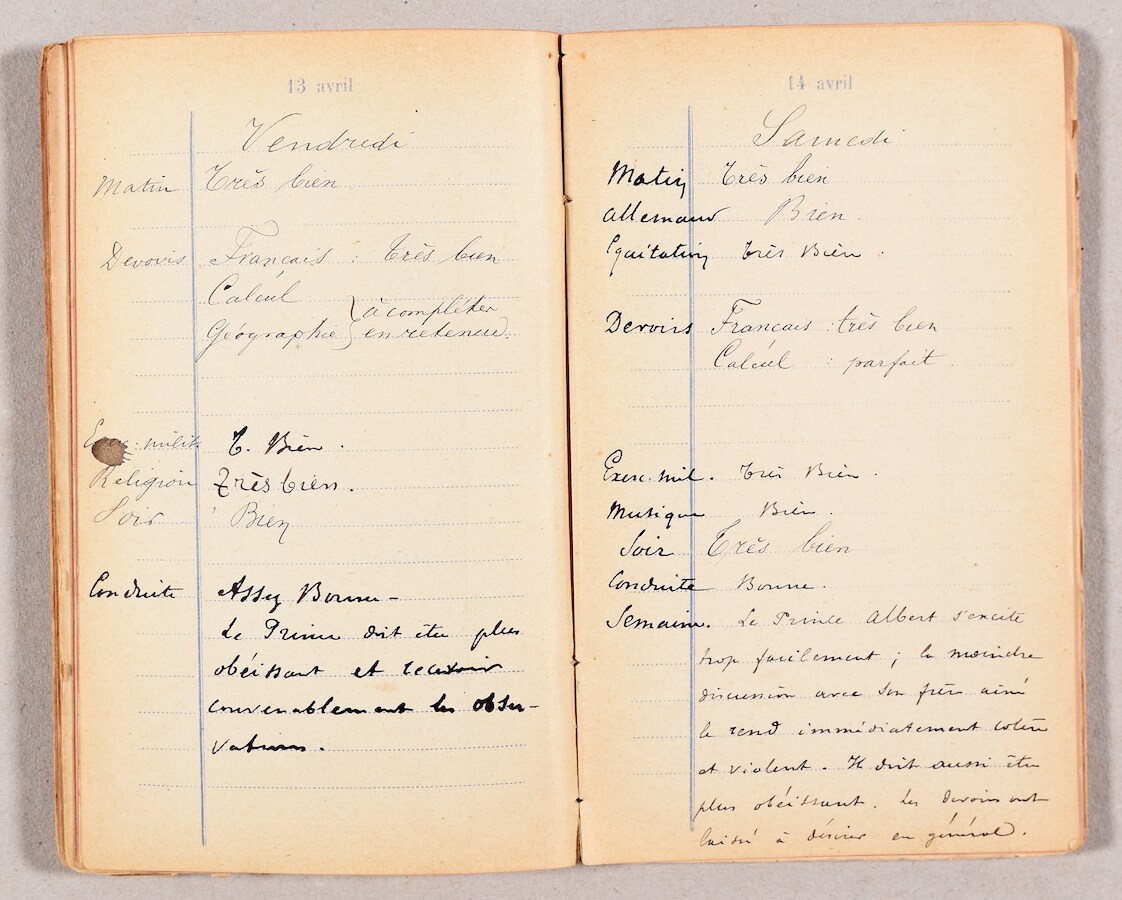 13 avril
Vendredi
Matin Très bien
Devoirs Français : très bien
Calcul
Géographie } à compléter en retenue.
Exerc. milit. T. Bien.
Religion Très bien.
Soir Bien
Conduite Assez Bonne –
Le Prince doit être plus
obéissant et recevoir
convenablement les obser-
vations.
14 avril
Samedi
Matin Très bien
Allemand Bien.
Equitation très Bien.
Devoirs Français : très bien
Calcul : parfait.
Exerc. mil. très Bien.
Musique Bien.
Soir Très bien
Conduite Bonne.
Semaine. Le Prince Albert s'excite
trop facilement ; la moindre
discussion avec son frère ainé
le rend immédiatement colère
et violent. Il doit aussi être
plus obéissant. Les devoirs ont
laissé à désirer en général.